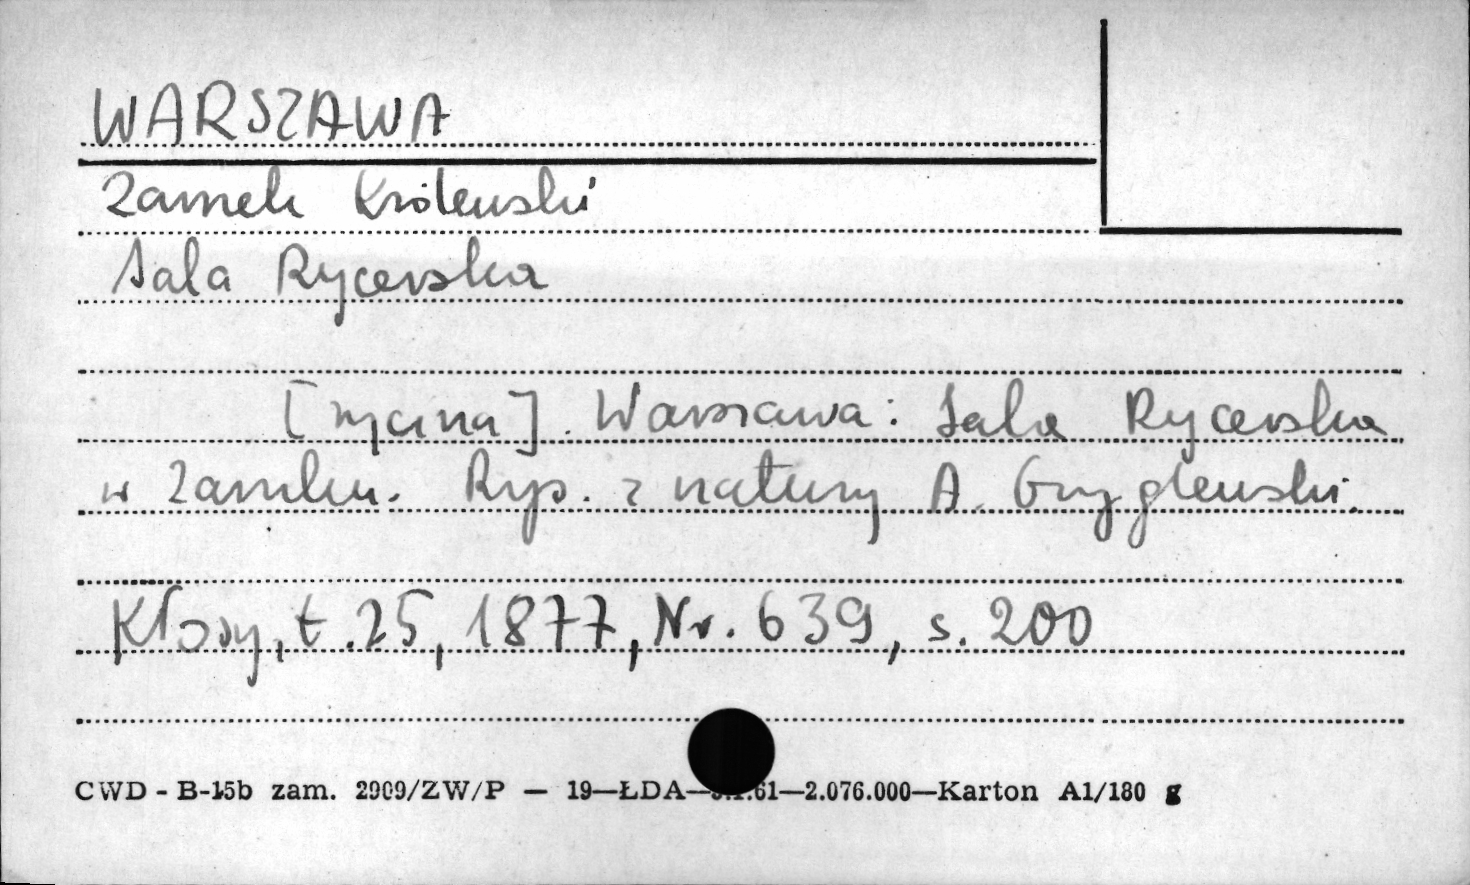 WARSZAWA
Zamek Królewski
Sala Rycerska
[rycina]. Warszawa: Sala Rycerska
w Zamku. Rys. z natury A. Gryglewski.
Kłosy, t. 25, 1877, Nr. 639, s. 200
CWD - B-15b zam. 2909/ZW/P — 19—ŁDA— .61—2.076.000—Karton A1/180 g